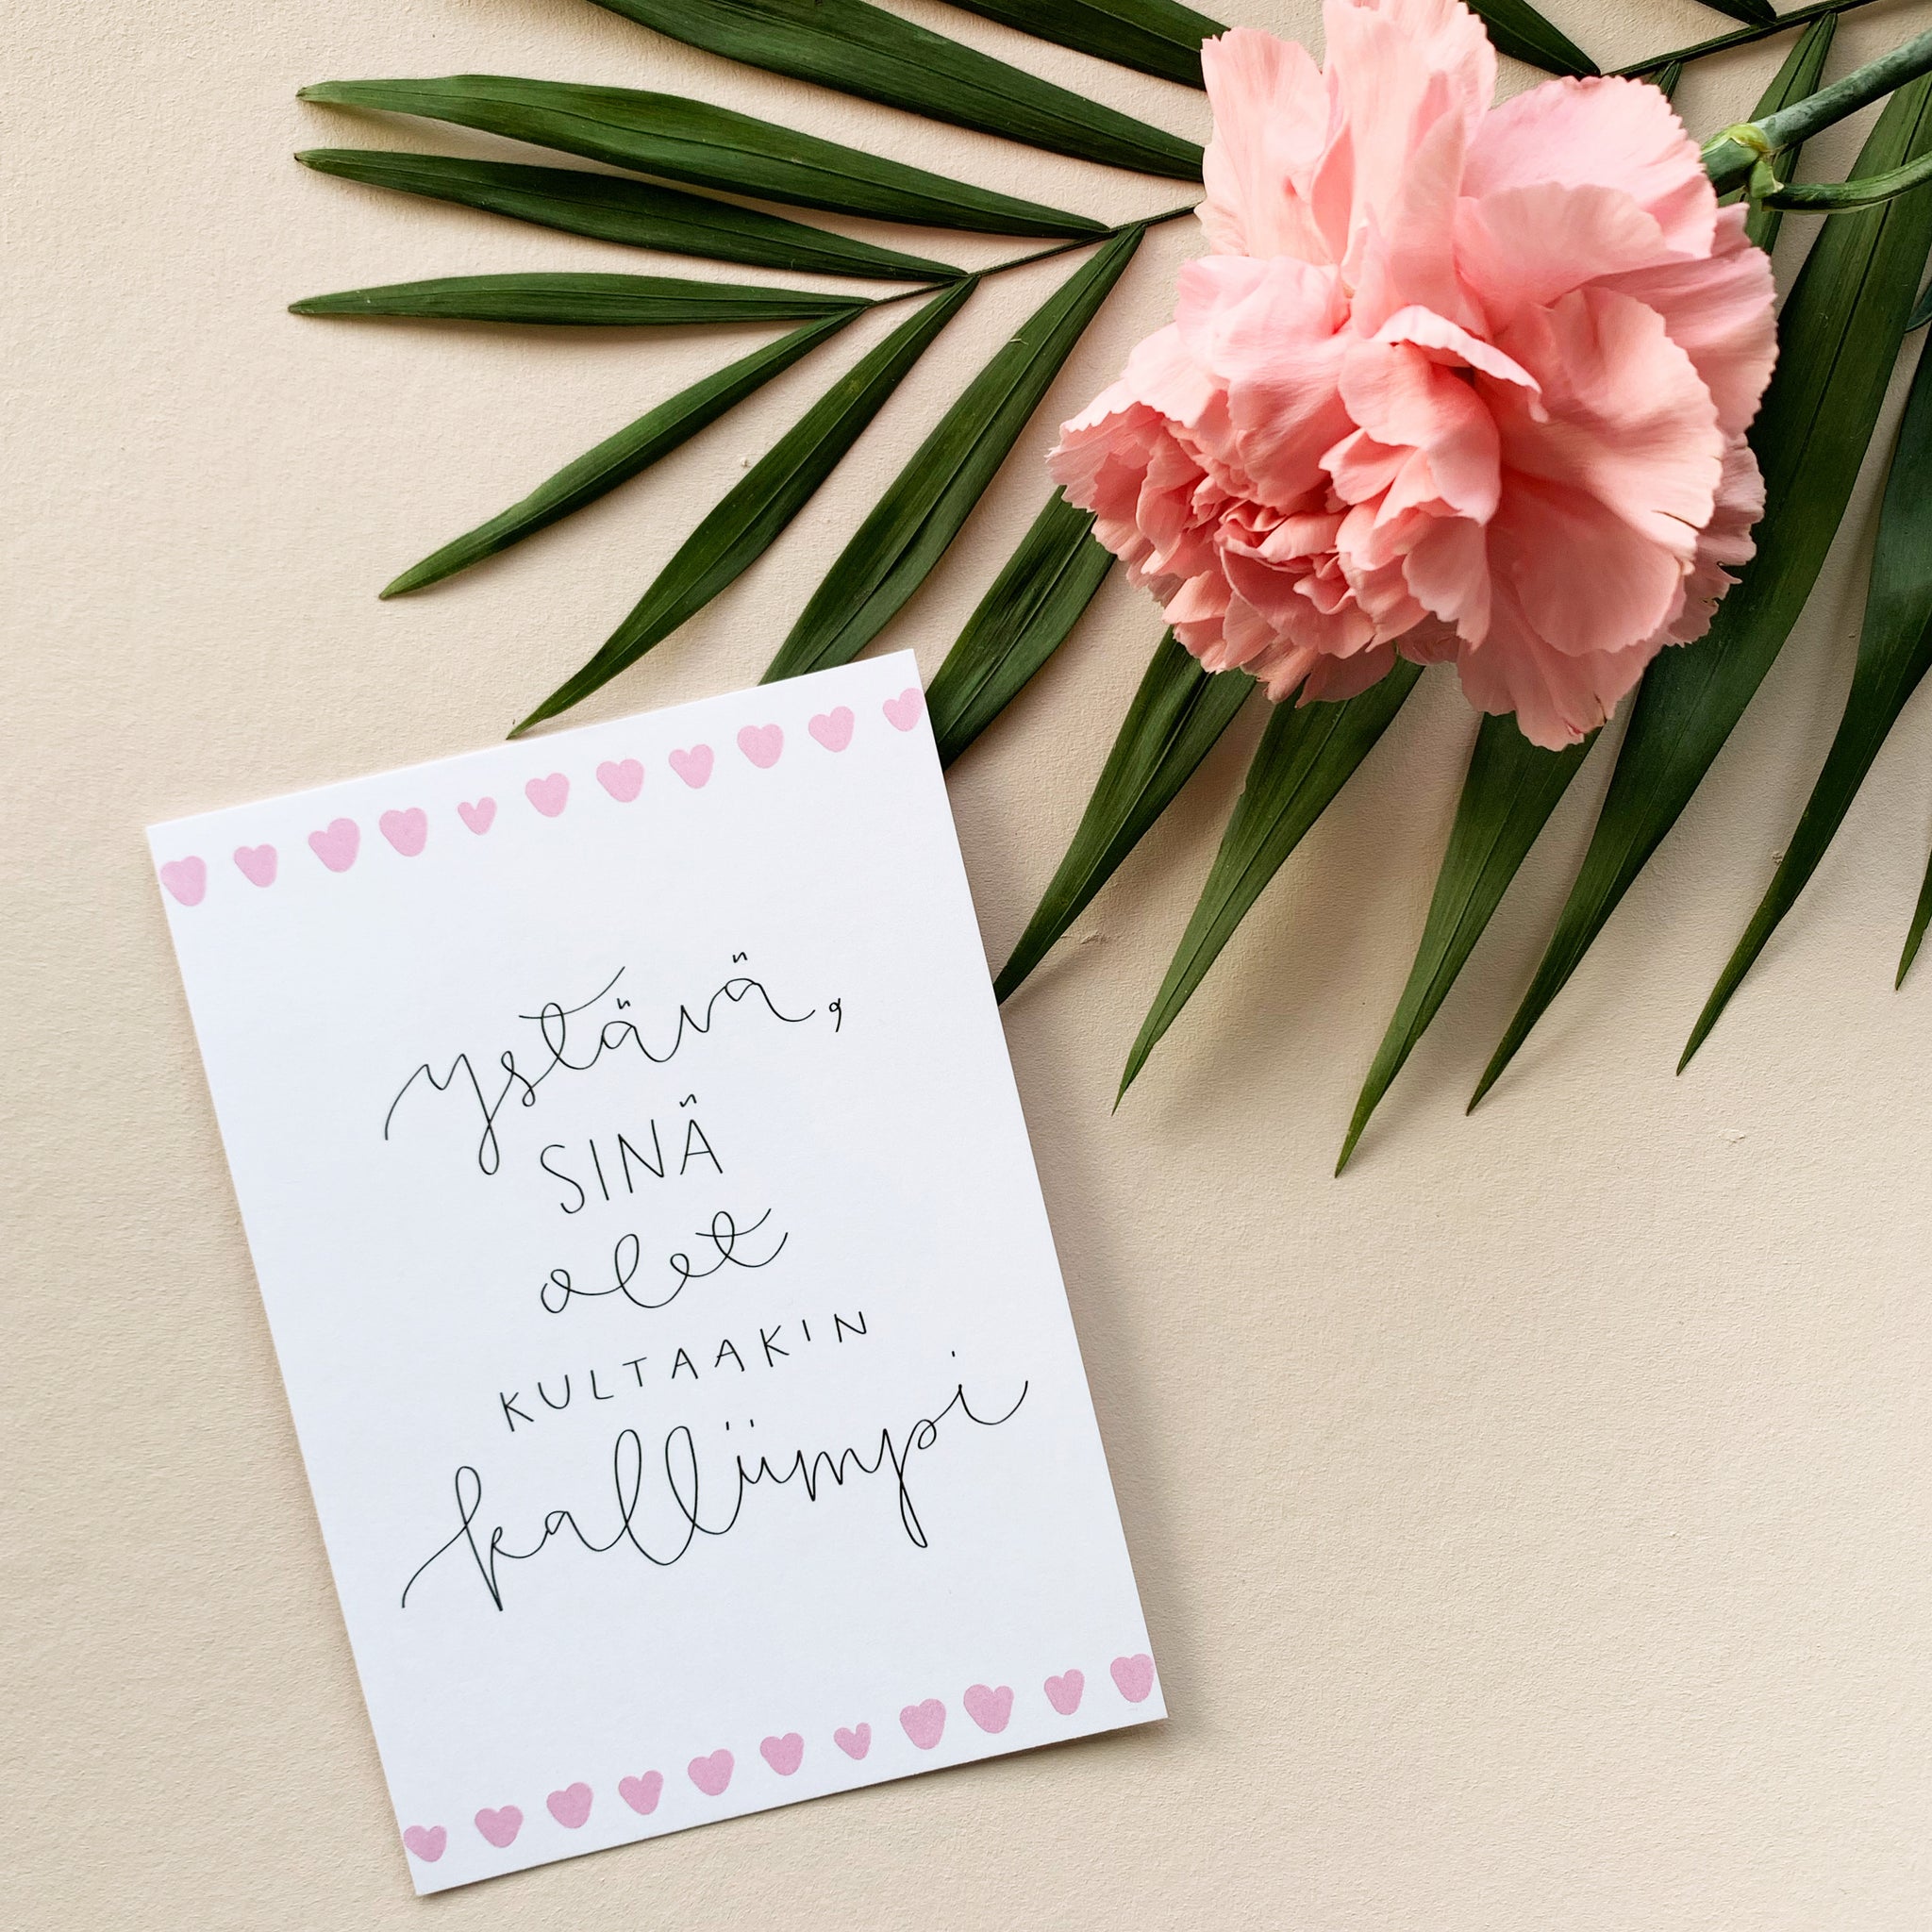 ystävä,
SINÄ
olet
KULTAAKIN
kalliimpi